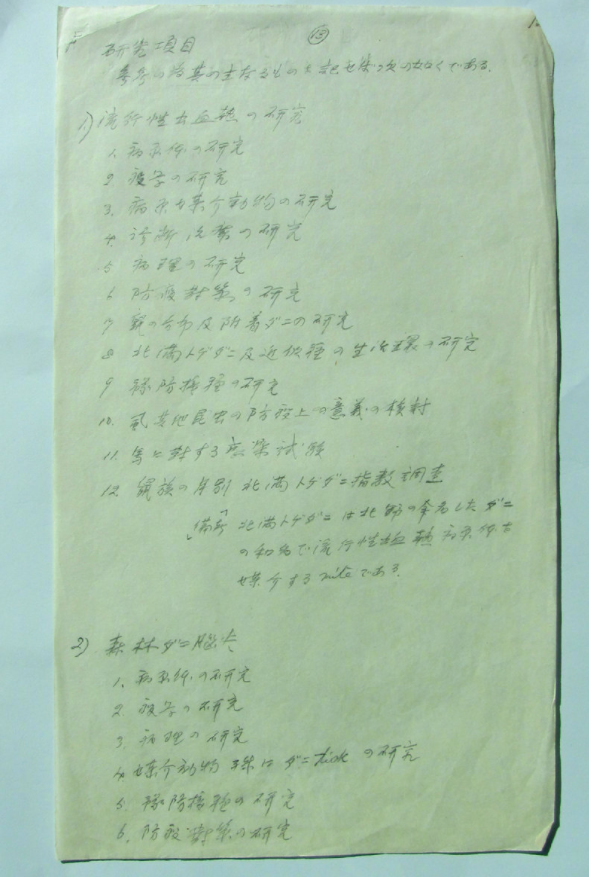 ⑮
研究項目
参考の為其の主なるものを記せば次の如くである.
1) 流行性出血熱の研究
1. 病原体の研究
2 疫学の研究
3. 病原媒介動物の研究
4. 診断治療の研究
5 病理の研究
6 防疫対策の研究
7 鼠の分布及附着ダニの研究
8 北満トゲダニ及近似種の生活環の研究
9 豫防接種の研究
10. 其他昆虫の防疫上の意義の検討
11. 馬に対する感染試験
12. 鼠族の月別北満トゲダニ指数調査
備考 北満トゲダニは北野の命名したダニ
の和名で流行性出血熱病原体を
媒介するmiteである.
2) 森林ダニ脳炎
1. 病原体の研究
2. 疫学の研究
3. 病理の研究
4. 媒介動物殊にダニtickの研究
5. 豫防接種の研究
6. 防疫対策の研究